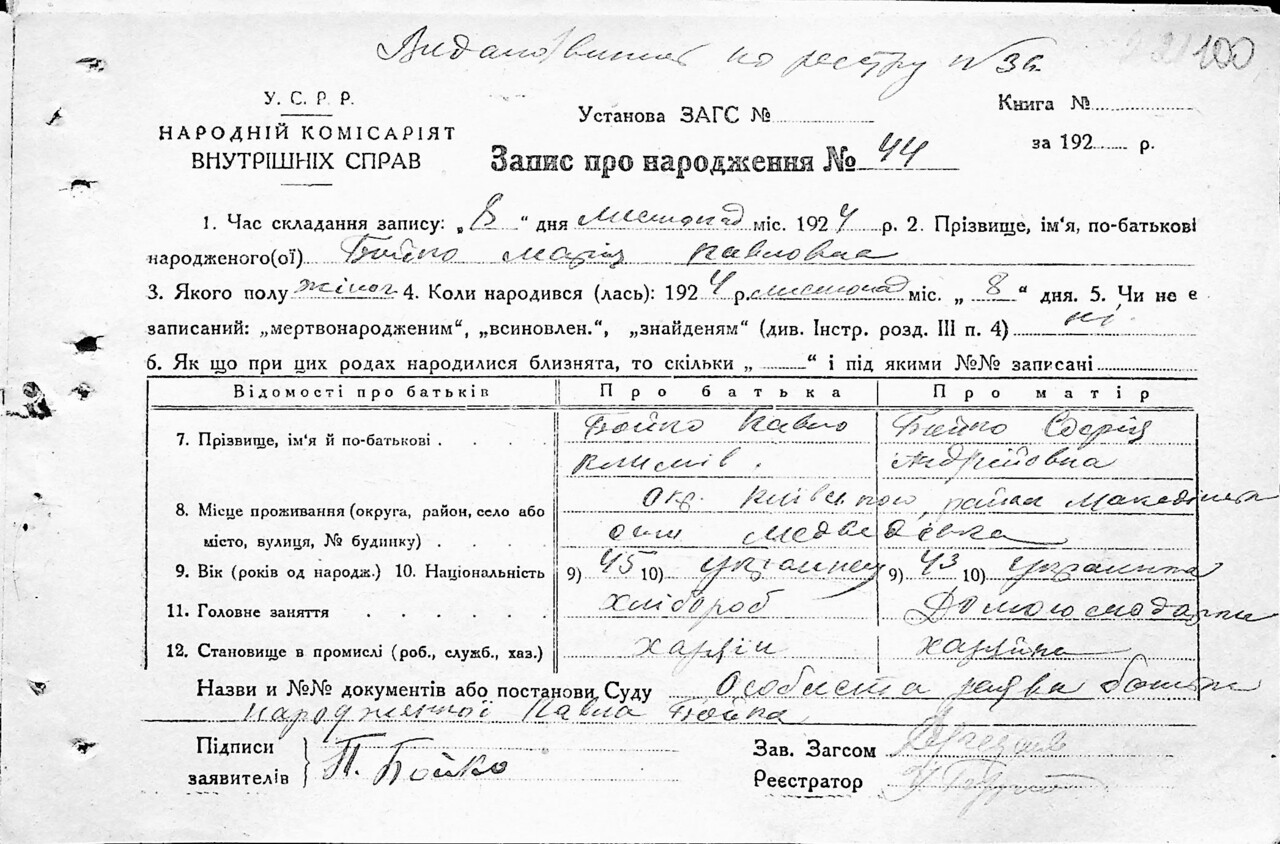 Видано випис по реєстру № 36
100
У. С. Р. Р.
НАРОДНІЙ КОМІСАРІЯТ
ВНУТРІШНІХ СПРАВ
Установа ЗАГС №
Книга №
за 192 р.
Запис про народження № 44
1. Час складання запису: „8“ дня листопад міс. 1924 р. 2. Прізвище, ім'я, по-батькові
народженого(ої) Бойко Марія Павловна
3. Якого полу жіноч 4. Коли народився (лась): 1924 р. листопад міс. „8“ дня. 5. Чи не є
записаний: „мертвонародженим“, „всиновлен.“, „знайденям“ (див. Інстр. розд. III п. 4) ні.
6. Як що при цих родах народилися близнята, то скільки „ “ і під якими №№ записані
Відомості про батьків Про батька Про матір
7. Прізвище, ім'я й по-батькові Бойко Павло Бойко Софія
Климів. Андрійовна
8. Місце проживання (округа, район, село або Окр. Київської, района
місто, вулиця, № будинку) села Медведівка
9. Вік (років од народж.) 10. Національність 9) 45 10) українец 9) 43 10) Українка
11. Головне заняття Хлібороб Домогосподарка
12. Становище в промислі (роб., служб., хаз.) хазяїн хазяйка
Назви и №№ документів або постанови Суду Особиста заява батька
народженної Павла Бойка
Підписи
заявителів П. Бойко
Зав. Загсом
Реєстратор